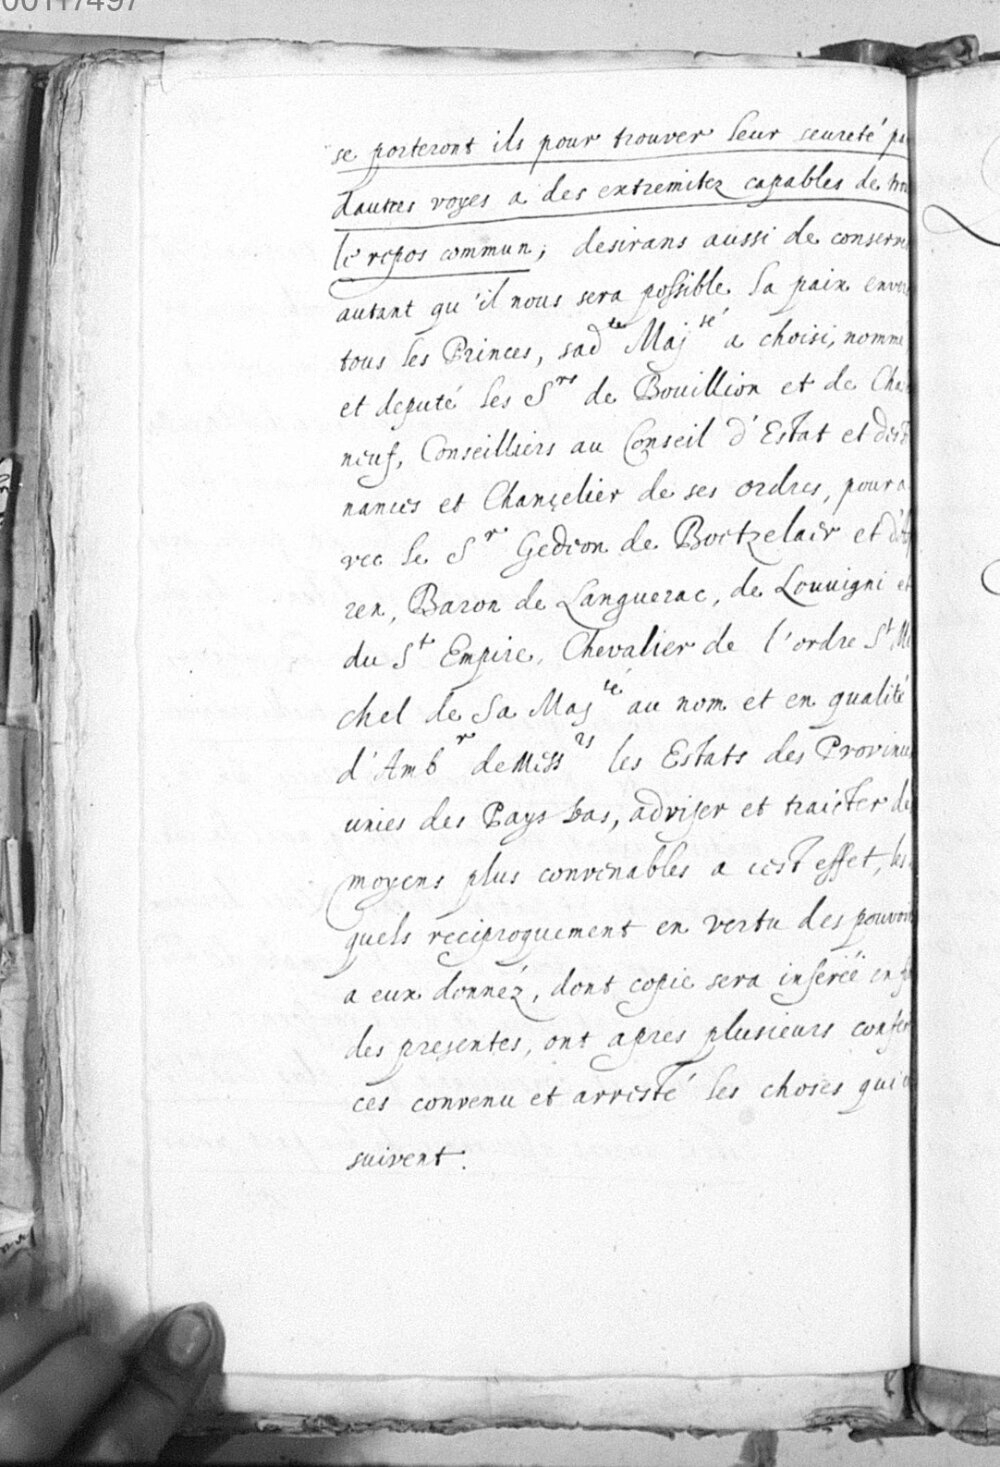 00117497
se porteront ils pour trouver leur seureté pa
dautres voyes a des extremitez capables de tro
le repos commun; desirans aussi de conserve
autant qu'il nous sera possible la paix enver
tous les Princes, sad.te Maj.té a choisi, nomme
et deputé les S.rs de Bouillion et de Cha
neuf, Conseilliers au Conseil d'Estat et des
nances et Chançelier de ses ordres, pour a
vec le S.r Gedeon de Boetzelaer et d'As
ren, Baron de Languerac, de Louvigni et
du S.t Empire, Chevalier de l'ordre S.t Mi
chel de Sa Maj.té au nom et en qualité
d'Amb.r de Mess.rs les Estats des Provinces
unies des Pays bas, adviser et traicter de
moyens plus convenables a cest effet, les
quels reciproquement en vertu des pouvoir
a eux donnéz, dont copie sera inserée en fi
des presentes, ont apres plusieurs confer
ces convenu et arresté les choses qui
suivent.